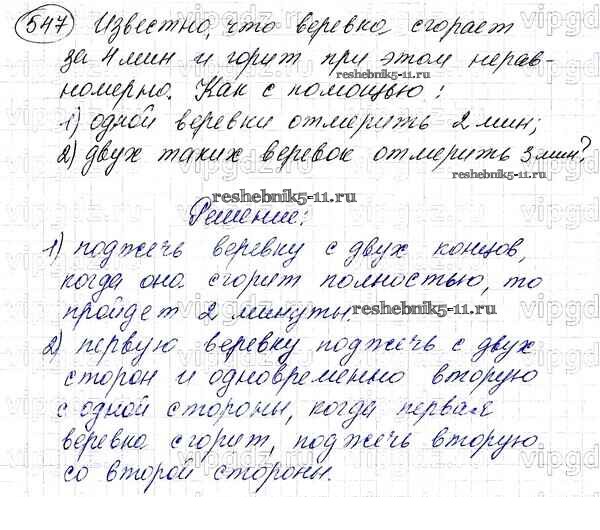 547 Известно, что веревка сгорает
за 4 мин и горит при этом нерав-
reshebnik5-11.ru
номерно. Как с помощью:
1) одной веревки отмерить 2 мин;
2) двух таких веревок отмерить 3 мин?
reshebnik5-11.ru
reshebnik5-11.ru
Решение:
1) поджечь веревку с двух концов,
когда она сгорит полностью, то
пройдет 2 минуты.
reshebnik5-11.ru
2) первую веревку поджечь с двух
сторон и одновременно вторую
с одной стороны, когда первая
веревка сгорит, поджечь вторую
со второй стороны.